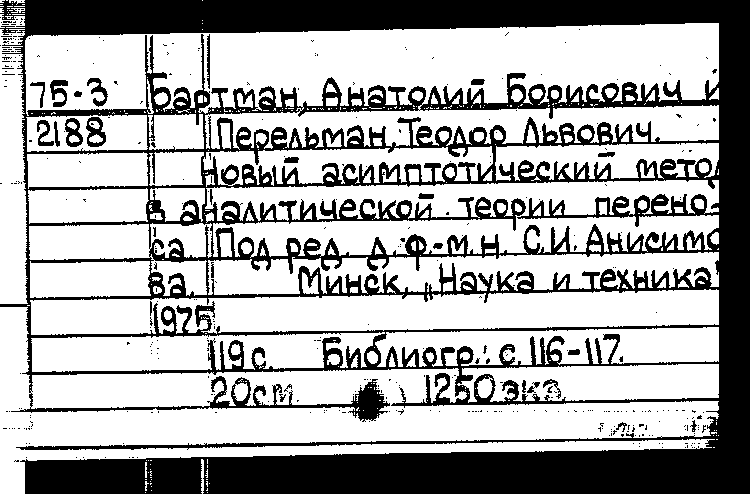 75-3 Бартман, Анатолий Борисович и
2188 Перельман, Теодор Львович.
Новый асимптотический метод
в аналитической теории перено-
са. Под ред. д.ф.-м.н. С.И. Анисимо
ва. Минск, „Наука и техника"
1975.
119 с. Библиогр.: с. 116-117.
20см 1250 экз.